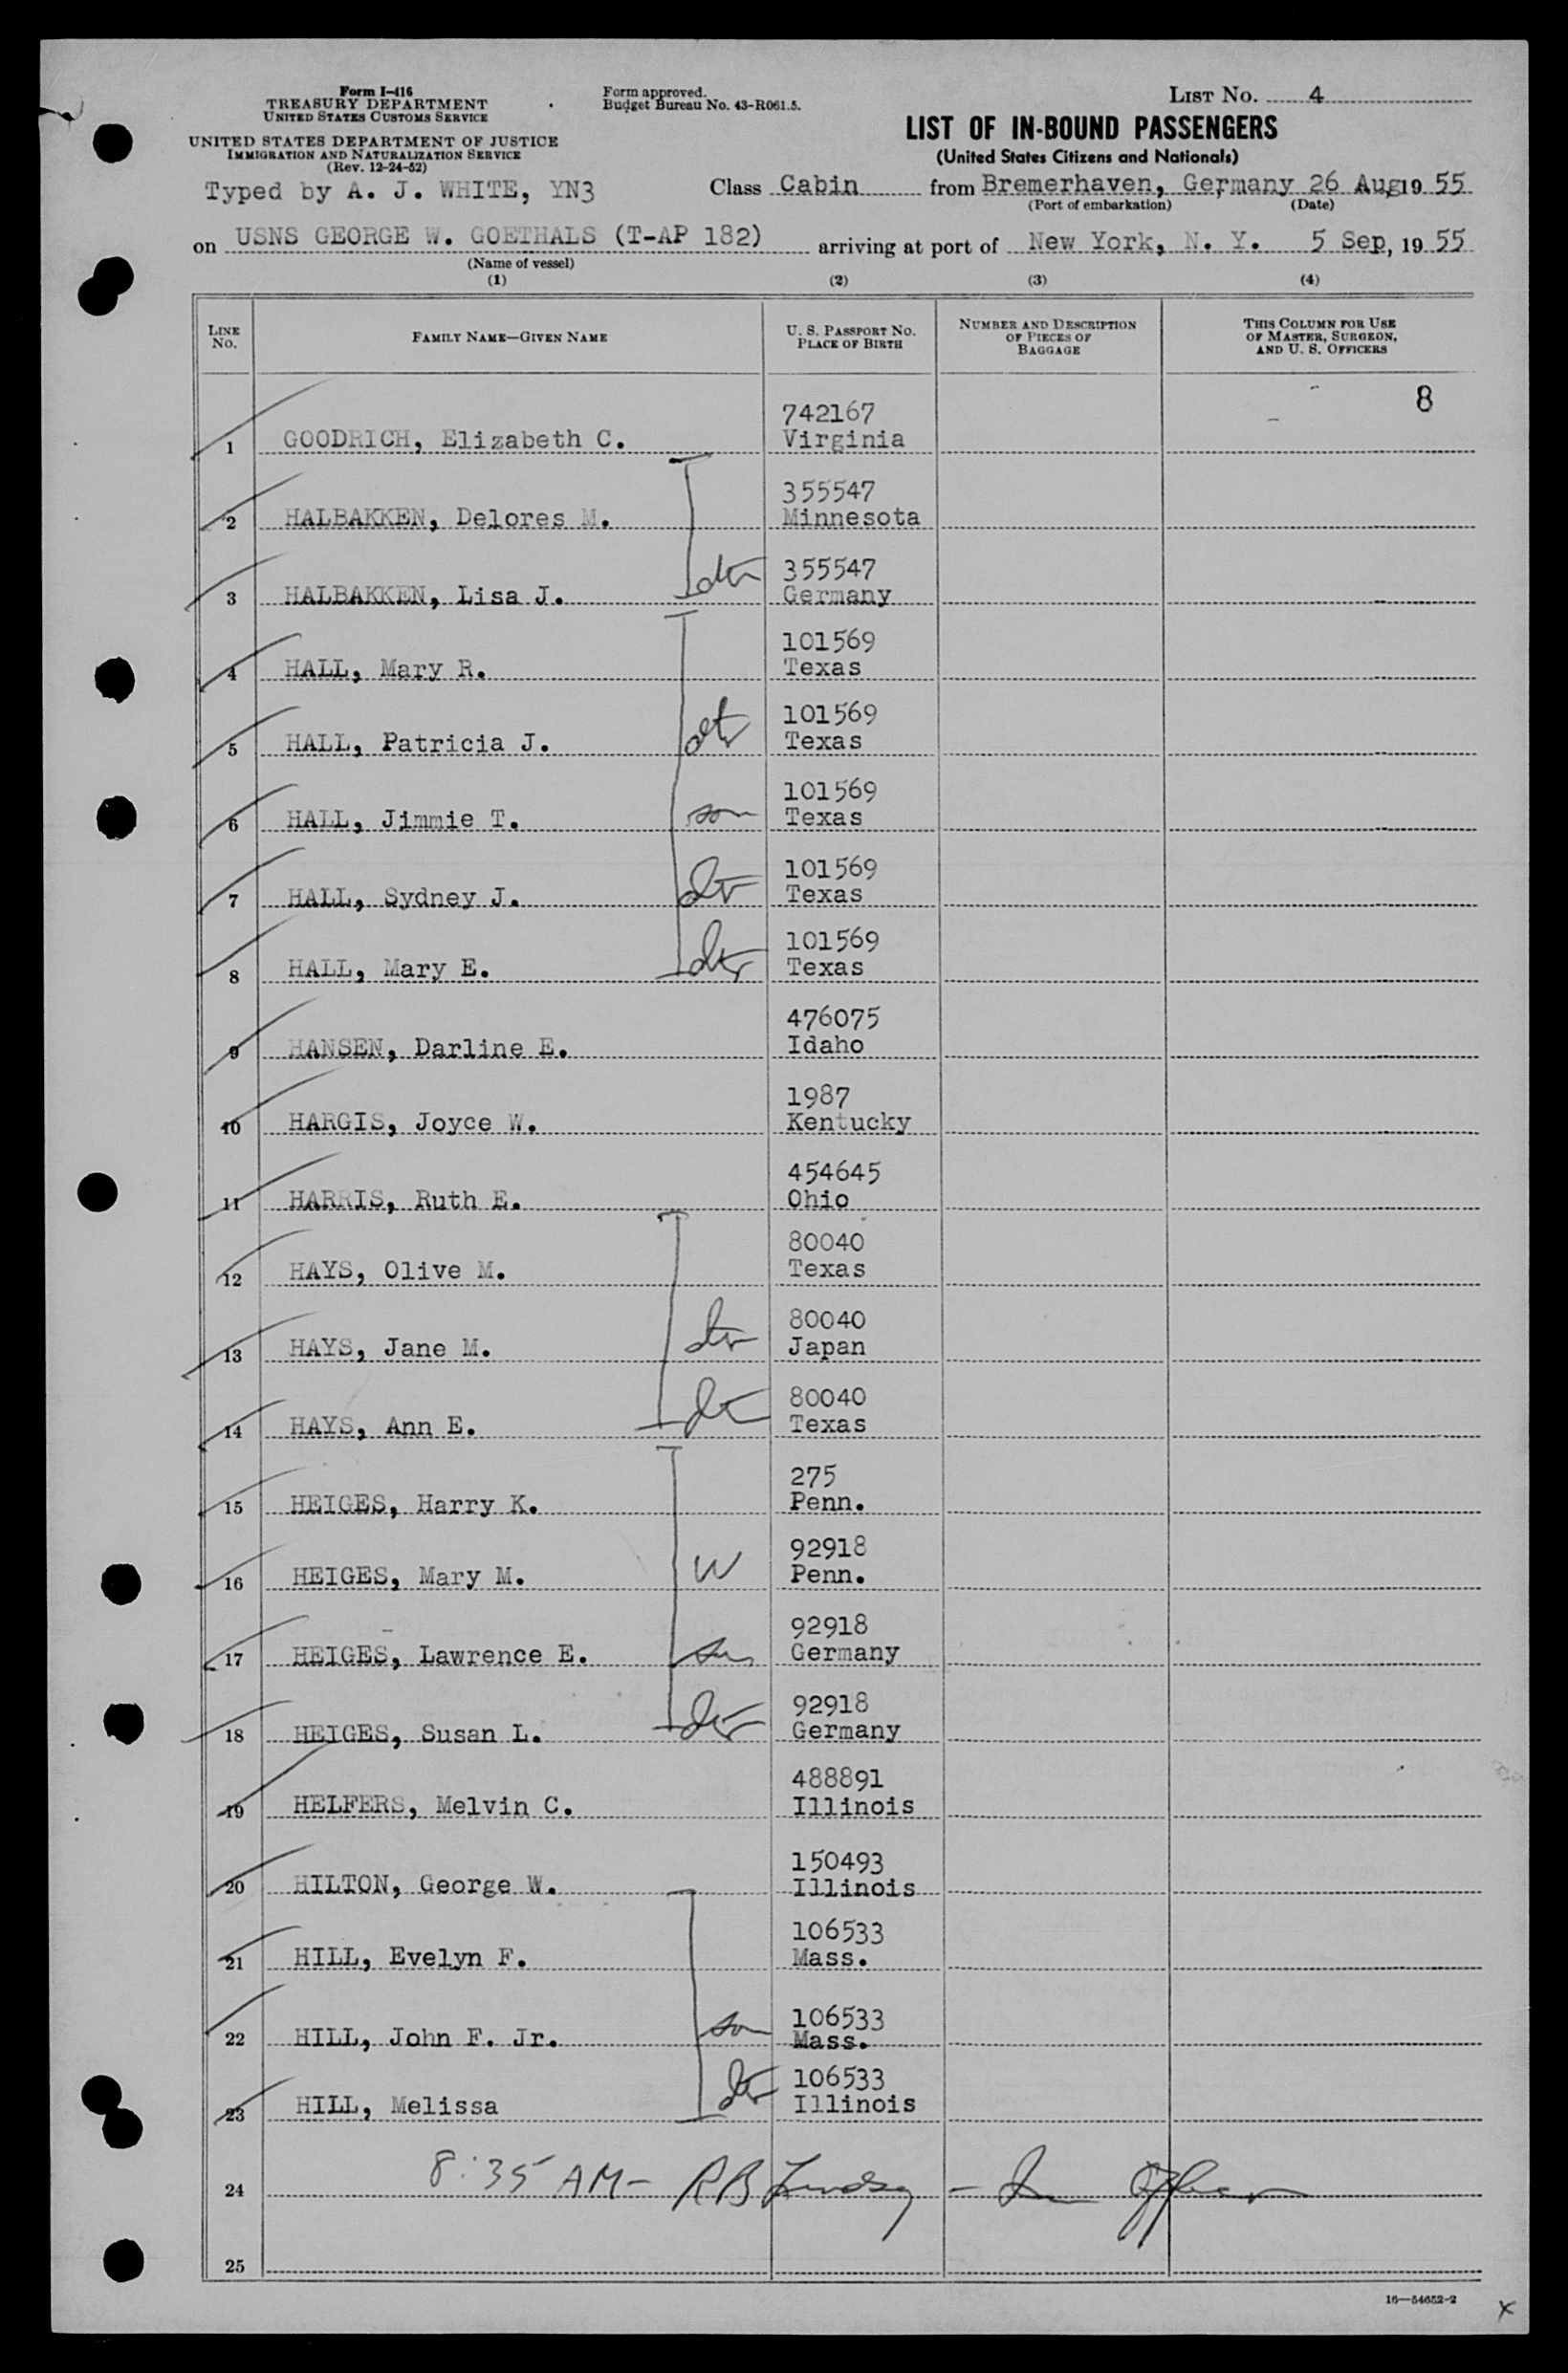 Form I-416
TREASURY DEPARTMENT
UNITED STATES CUSTOMS SERVICE
UNITED STATES DEPARTMENT OF JUSTICE
IMMIGRATION AND NATURALIZATION SERVICE
(Rev. 12-24-52)
Typed by A. J. WHITE, YN3
Form approved.
Budget Bureau No. 43-R061.5.
LIST NO. 4
LIST OF IN-BOUND PASSENGERS
(United States Citizens and Nationals)
Class Cabin from Bremerhaven, Germany 26 Aug 19 55
(Port of embarkation) (Date)
on USNS GEORGE W. GOETHALS (T-AP 182) arriving at port of New York, N. Y. 5 Sep, 19 55
(Name of vessel)
(1) (2) (3) (4)
LINE NO.
FAMILY NAME—GIVEN NAME
U. S. PASSPORT NO.
PLACE OF BIRTH
NUMBER AND DESCRIPTION
OF PIECES OF
BAGGAGE
THIS COLUMN FOR USE
OF MASTER, SURGEON,
AND U. S. OFFICERS
8
742167
1 GOODRICH, Elizabeth C. Virginia
355547
2 HALBAKKEN, Delores M. Minnesota
355547
3 HALBAKKEN, Lisa J. dtr Germany
101569
4 HALL, Mary R. Texas
101569
5 HALL, Patricia J. Texas
101569
6 HALL, Jimmie T. son Texas
101569
7 HALL, Sydney J. dtr Texas
101569
8 HALL, Mary E. dtr Texas
476075
9 HANSEN, Darline E. Idaho
1987
10 HARGIS, Joyce W. Kentucky
454645
11 HARRIS, Ruth E. Ohio
80040
12 HAYS, Olive M. Texas
80040
13 HAYS, Jane M. dtr Japan
80040
14 HAYS, Ann E. dtr Texas
275
15 HEIGES, Harry K. Penn.
92918
16 HEIGES, Mary M. W Penn.
92918
17 HEIGES, Lawrence E. son Germany
92918
18 HEIGES, Susan L. dtr Germany
488891
19 HELFERS, Melvin C. Illinois
150493
20 HILTON, George W. Illinois
106533
21 HILL, Evelyn F. Mass.
106533
22 HILL, John F. Jr. son Mass.
106533
23 HILL, Melissa dtr Illinois
24 8:35 AM - RB Lindsey - Imm Officer
25
16—54652-2
x